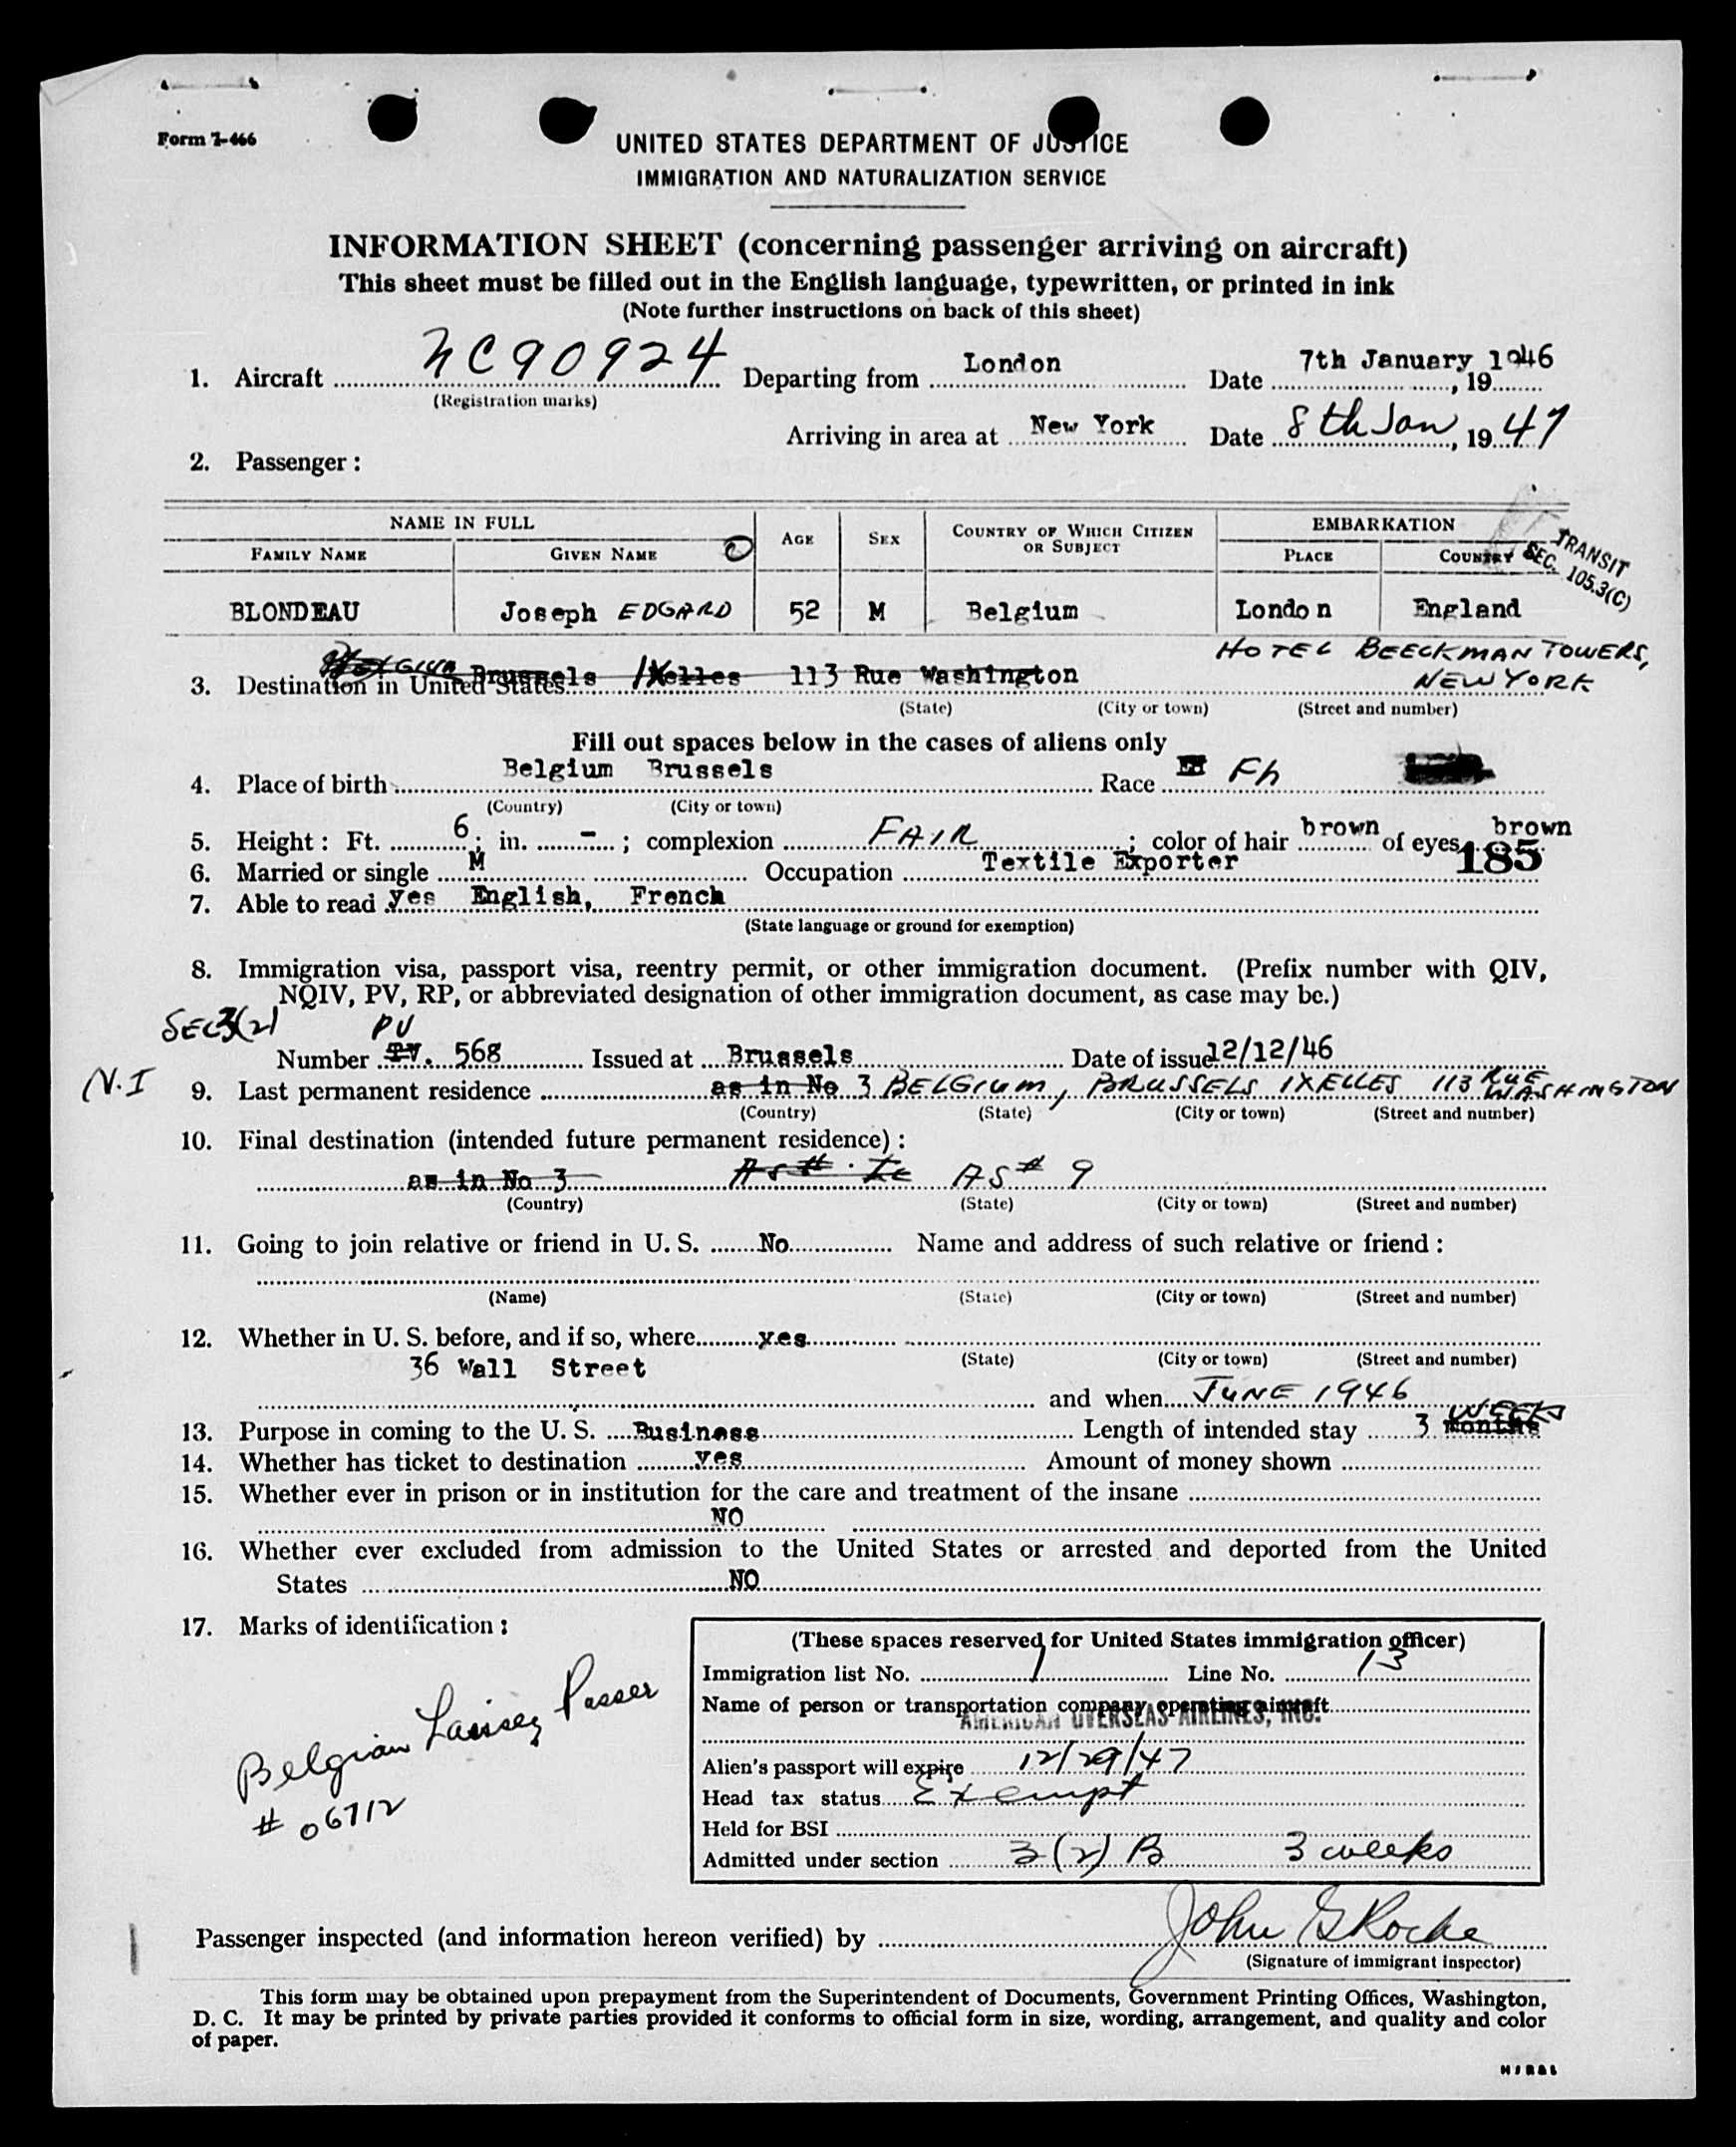 Form I-466
UNITED STATES DEPARTMENT OF JUSTICE
IMMIGRATION AND NATURALIZATION SERVICE
INFORMATION SHEET (concerning passenger arriving on aircraft)
This sheet must be filled out in the English language, typewritten, or printed in ink
(Note further instructions on back of this sheet)
1. Aircraft NC90924 Departing from London Date 7th January 1946, 19
(Registration marks)
Arriving in area at New York Date 8th Jan, 1947
2. Passenger:
NAME IN FULL
FAMILY NAME GIVEN NAME AGE SEX COUNTRY OF WHICH CITIZEN OR SUBJECT EMBARKATION PLACE COUNTRY
TRANSIT
SEC. 105.3(C)
BLONDEAU Joseph EDGARD 52 M Belgium London England
HOTEL BEECKMAN TOWERS,
3. Destination in United States Brussels Ixelles 113 Rue Washington NEW YORK
(State) (City or town) (Street and number)
Fill out spaces below in the cases of aliens only
4. Place of birth Belgium Brussels Race Fh
(Country) (City or town)
5. Height: Ft. 6; in. -; complexion FAIR; color of hair brown of eyes brown
185
6. Married or single M Occupation Textile Exporter
7. Able to read yes English, French
(State language or ground for exemption)
8. Immigration visa, passport visa, reentry permit, or other immigration document. (Prefix number with QIV,
NQIV, PV, RP, or abbreviated designation of other immigration document, as case may be.)
SEC 3(2) PV
Number 568 Issued at Brussels Date of issue 12/12/46
N.I 9. Last permanent residence as in No 3 BELGIUM, BRUSSELS IXELLES 113 RUE WASHINGTON
(Country) (State) (City or town) (Street and number)
10. Final destination (intended future permanent residence):
as in No 3 AS # 9
(Country) (State) (City or town) (Street and number)
11. Going to join relative or friend in U. S. No Name and address of such relative or friend:
(Name) (State) (City or town) (Street and number)
12. Whether in U. S. before, and if so, where yes
36 Wall Street (State) (City or town) (Street and number)
and when JUNE 1946
13. Purpose in coming to the U. S. Business Length of intended stay 3 months WEEKS
14. Whether has ticket to destination yes Amount of money shown
15. Whether ever in prison or in institution for the care and treatment of the insane
NO
16. Whether ever excluded from admission to the United States or arrested and deported from the United
States NO
17. Marks of identification:
Belgian Laissez Passer
# 06712
(These spaces reserved for United States immigration officer)
Immigration list No. 1 Line No. 13
Name of person or transportation company operating aircraft
AMERICAN OVERSEAS AIRLINES, INC.
Alien's passport will expire 12/29/47
Head tax status Exempt
Held for BSI
Admitted under section 3(2) B 3 weeks
Passenger inspected (and information hereon verified) by John G Roche
(Signature of immigrant inspector)
This form may be obtained upon prepayment from the Superintendent of Documents, Government Printing Offices, Washington,
D. C. It may be printed by private parties provided it conforms to official form in size, wording, arrangement, and quality and color
of paper.